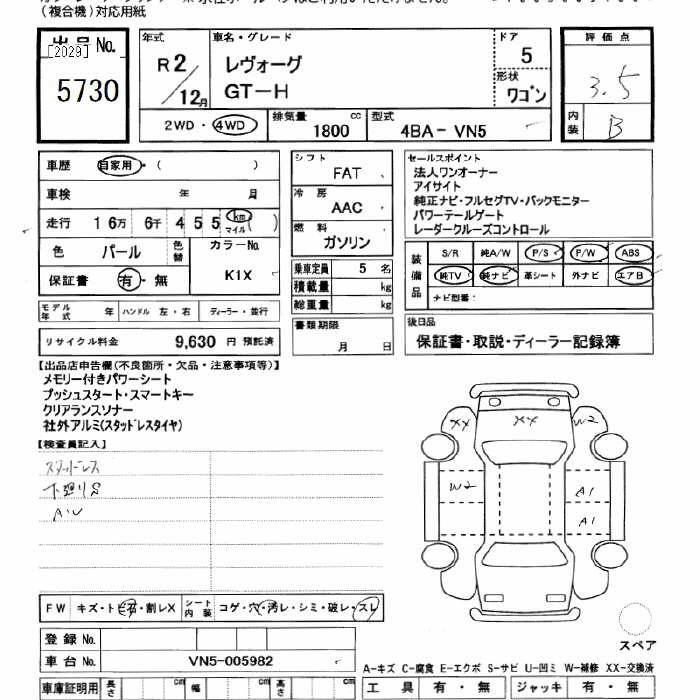 （複合機）対応用紙
出品 No.
[2029]
5730
年式
R2/12月
車名・グレード
レヴォーグ
GT-H
ドア
5
形状
ワゴン
評価点
3.5
内装
B
2WD・4WD
排気量 1800 cc
型式 4BA-VN5
車歴 自家用・（ ）
車検 年 月
走行 16万 6千 455 km マイル ( )
色 パール
色替
カラーNo.
K1X
保証書 有・無
シフト
FAT
冷房
AAC
燃料
ガソリン
乗車定員 5 名
積載量 kg
総重量 kg
書類期限
月 日
セールスポイント
法人ワンオーナー
アイサイト
純正ナビ・フルセグTV・バックモニター
パワーテールゲート
レーダークルーズコントロール
装備品
S/R 純A/W P/S P/W ABS
純TV 純ナビ 革シート 外ナビ エアB
ナビ型番：
モデル年式 年 ハンドル 左・右 ディーラー・並行
後日品
保証書・取説・ディーラー記録簿
リサイクル料金 9,630 円 預託済
【出品店申告欄(不良箇所・欠品・注意事項等)】
メモリー付きパワーシート
プッシュスタート・スマートキー
クリアランスソナー
社外アルミ(スタッドレスタイヤ)
【検査員記入】
スタッドレス
下廻りS
A・U
XX
XX
W2
W2
A1
A1
FW キズ・トビ石・割レX
シート内装 コゲ・穴・汚レ・シミ・破レ・スレ
スペア
登録 No.
車台 No. VN5-005982
A-キズ C-腐食 E-エクボ S-サビ U-凹ミ W-補修 XX-交換済
車庫証明用 長さ cm 幅 cm 高さ cm
工具 有・無 ジャッキ 有・無